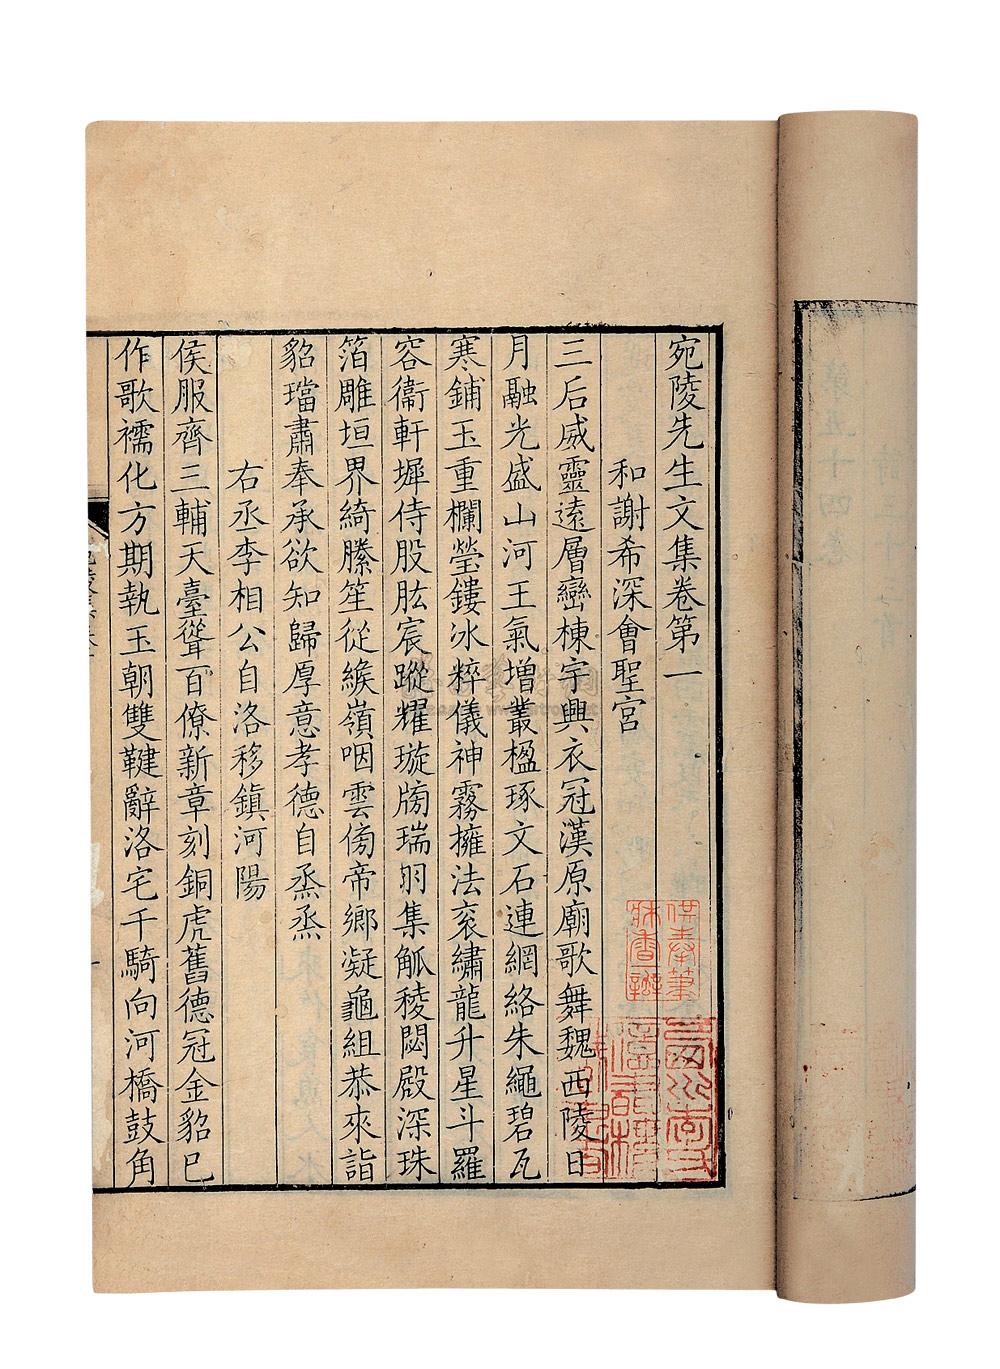 宛陵先生文集卷第一
和謝希深會聖宮
三后威靈遠層巒棟宇興衣冠漢原廟歌舞魏西陵日
月融光盛山河王氣增叢楹琢文石連網絡朱繩碧瓦
寒鋪玉重欄瑩鏤冰粹儀神霧擁法衮繡龍升星斗羅
容衞軒墀侍股肱宸蹤耀璇牓瑞羽集觚稜閟殿深珠
箔雕垣界綺縢笙從緱嶺咽雲傍帝鄉凝龜組恭來詣
貂璫肅奉承欲知歸厚意孝德自烝烝
右丞李相公自洛移鎮河陽
侯服齊三輔天臺聳百僚新章刻銅虎舊德冠金貂已
作歌襦化方期執玉朝雙鞬辭洛宅千騎向河橋鼓角
第五十四卷